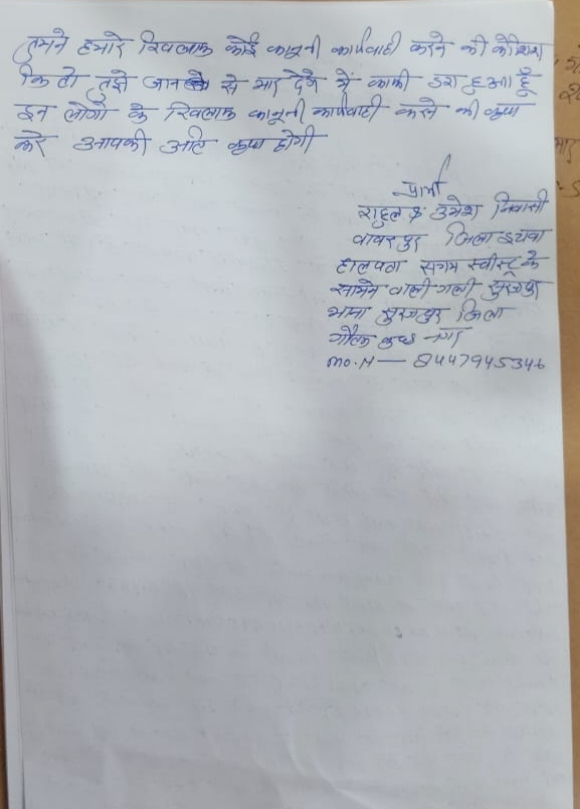 तुमने हमारे खिलाफ कोई कानूनी कार्यवाही करने की कोशिश
कि तो तुझे जान से मार देगे में काफी डरा हुआ हूँ
इन लोगो के खिलाफ कानूनी कार्यवाही करने की कृपा
करे आपकी अति कृपा होगी
प्रार्थी
राहुल S/ उमेश निवासी
जिला इटावा
हालपता सगम स्वीस्ट के
सामने वाली गली सुरजपुर
थाना सुरजपुर जिला
गौतम बुध नगर
mo.N — 8447945346